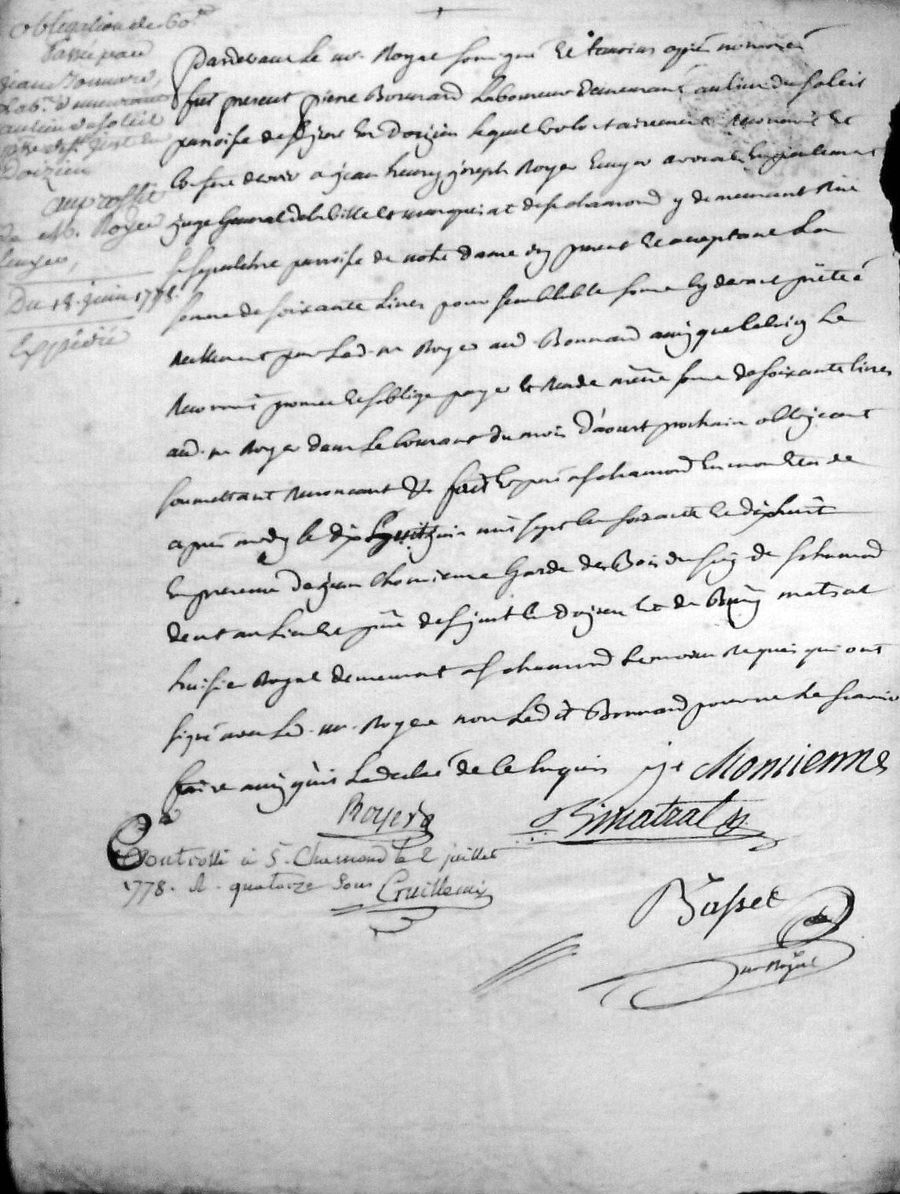 obligation de 60#
passé par
jean Bonnard,
Lab.r demeurant
au lieu du soleil
psse de St just en
Doizieu
au proffit
de Mr. Royer
Ecuyer,
Du 18. juin 1778.
Expédié
Pardevant Le nre. Royal soussigné Et temoins après nommés
fut present pierre Bonnard Laboureur demeurant au lieu du soleil
paroisse de St just En Doizieu lequel volontairement reconnoit Et
Confesse devoir a jean henry joseph Royer Ecuyer avocat En parlement
juge General de la Ville Et marquisat de St chamond y demeurant Rüe
St sepulchre paroisse de notre dame icy present Et acceptant La
somme de soixante Livres pour semblable somme cy devant prêtée
reellement par Led. sr. Royer aud. Bonnard ainsy que celuicy Le
reconnoit promet Et s'oblige payer Et Rendre même somme de soixante livres
aud. sr. Royer dans Le Courant du mois d'aoust prochain obligeant
soumettant Renoncant &c fait Et passé a St chamond En nre Etude
après midy le dix huit juin mil sept Cent soixante Et dix huit
En presence de jean Chomienne Garde des Bois du seig. de St chamond
demt au Lieu Et psse de St just En Doizieu Et de matrat
huissier Royal demeurant a St chamond temoins Requis qui ont
signé avec Led. sr. Royer non Led.t Bonnard pour ne Le scavoir
faire ainsy qu'il L'a declaré de ce Enquis
j. Chomienne
Royer
Bmatrat
Controllé à S.t Chamond le 2 juillet
1778. R. quatorze sous Guillemin
Basset
nre Royal